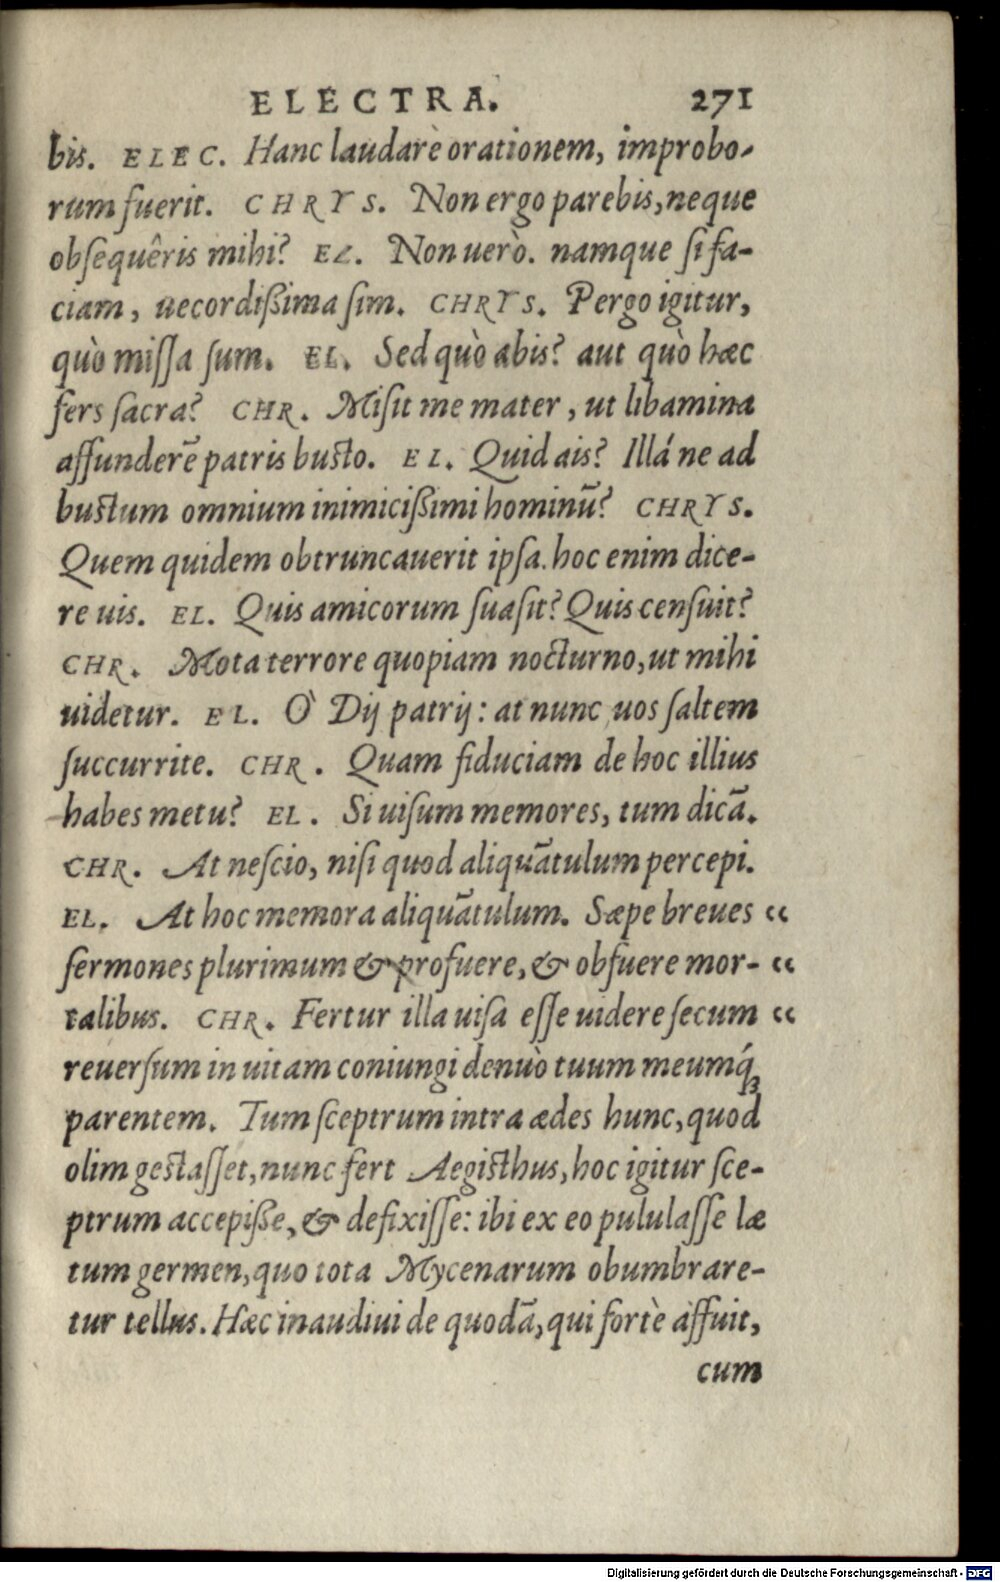 ELECTRA. 271
bis. ELEC. Hanc laudarè orationem, improbo-
rum fuerit. CHRYS. Non ergo parebis, neque
obsequêris mihi? EL. Non uerò. namque si fa-
ciam, uecordißima sim. CHRYS. Pergo igitur,
quò missa sum. EL. Sed quò abis? aut quò hæc
fers sacra? CHR. Misit me mater, ut libamina
affunderẽ patris busto. EL. Quid ais? Illá ne ad
bustum omnium inimicißimi hominũ? CHRYS.
Quem quidem obtruncauerit ipsa. hoc enim dice-
re uis. EL. Quis amicorum suasit? Quis censuit?
CHR. Mota terrore quopiam nocturno, ut mihi
uidetur. EL. Ò Dij patrij: at nunc uos saltem
succurrite. CHR. Quam fiduciam de hoc illius
habes metu? EL. Si uisum memores, tum dicã.
CHR. At nescio, nisi quod aliquãtulum percepi.
EL. At hoc memora aliquãtulum. Sæpe breues “
sermones plurimum & profuere, & obfuere mor- “
talibus. CHR. Fertur illa uisa esse uidere secum “
reuersum in uitam coniungi denuò tuum meumq́ꝫ
parentem. Tum sceptrum intra ædes hunc, quod
olim gestasset, nunc fert Aegisthus, hoc igitur sce-
ptrum accepiße, & defixisse: ibi ex eo pululasse læ
tum germen, quo tota Mycenarum obumbrare-
tur tellus. Hæc inaudiui de quodã, qui fortè affuit,
cum
Digitalisierung gefördert durch die Deutsche Forschungsgemeinschaft - DFG